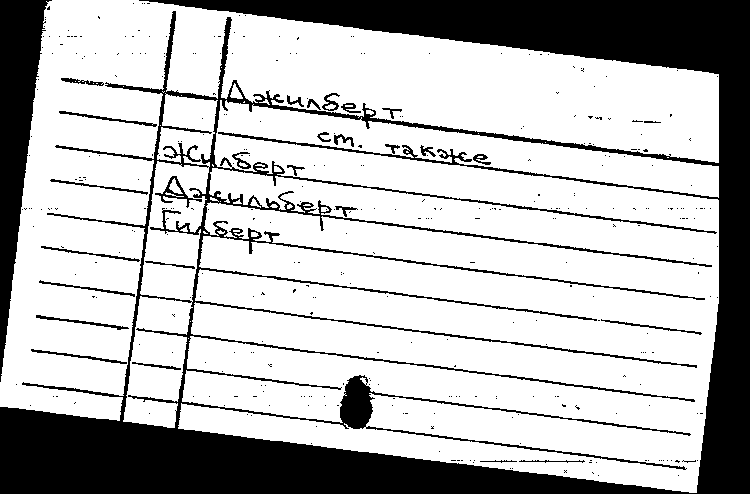 Джилберт
ст. также
Жилберт
Джильберт
Гилберт